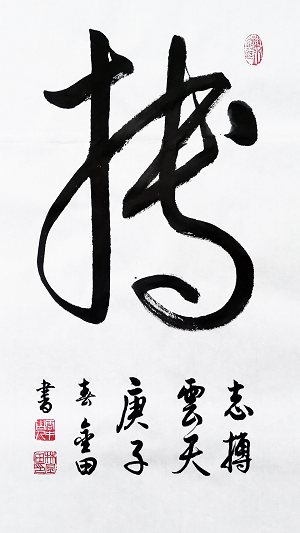 搏
志搏
雲天
庚子
田
書